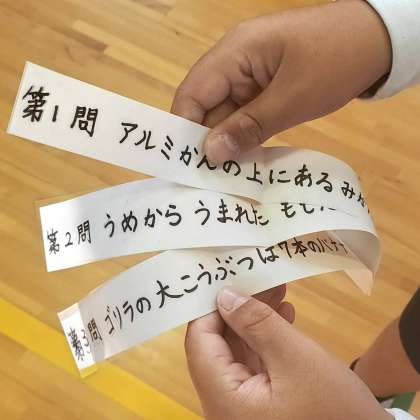 第1問 アルミかんの上にある みか
第2問 うめから うまれた もも
第3問 ゴリラの 大こうぶつは 7本のバナナ